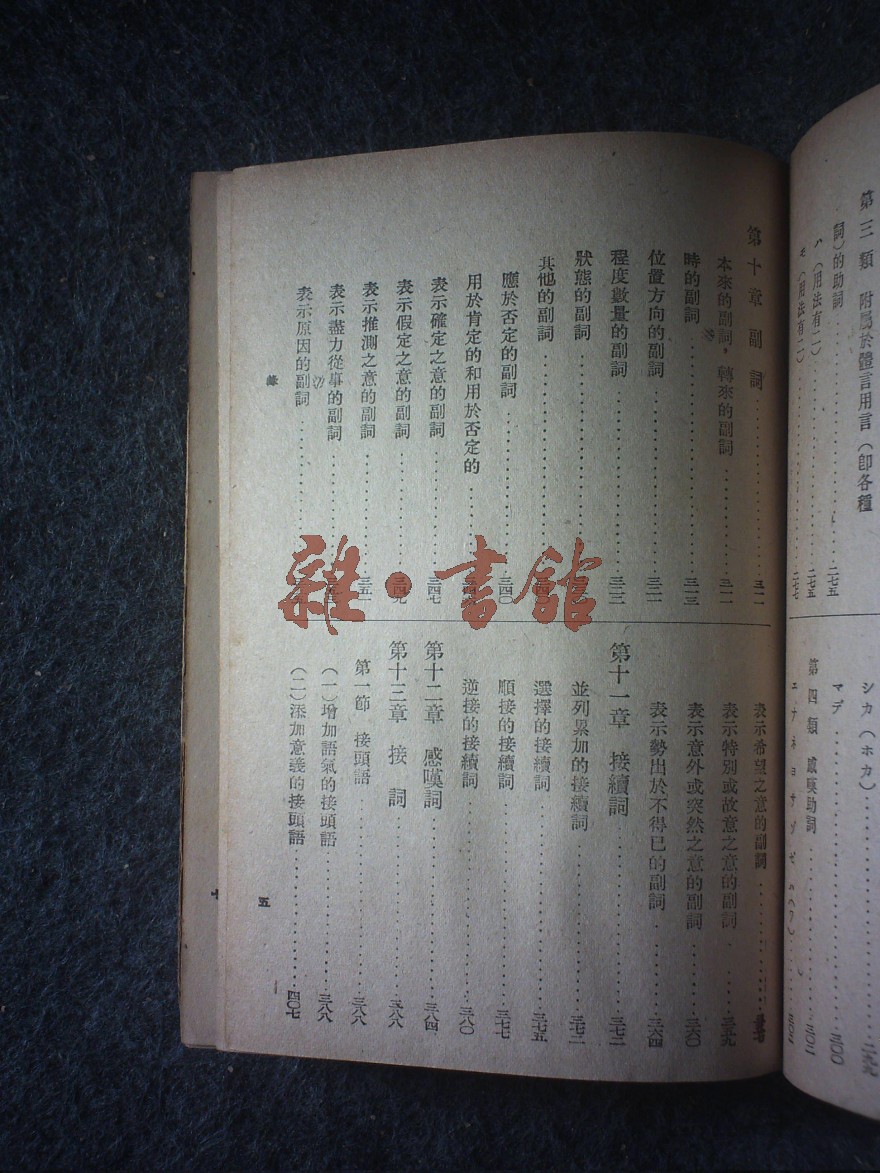 第三類 附屬於體言用言(卽各種
詞)的助詞……二七五
ハ(用法有二)……二七五
モ(用法有二)……二七七
シカ(ホカ)……二九九
マデ……三〇〇
第四類 感嘆助詞……三〇二
第十章 副詞……三一一
本來的副詞,轉來的副詞……三一一
時的副詞……三一三
位置方向的副詞……三二一
程度數量的副詞……三二三
狀態的副詞
其他的副詞
應於否定的副詞……三四〇
用於肯定的和用於否定的
表示確定之意的副詞……三四七
表示假定之意的副詞……三四九
表示推測之意的副詞……三五一
表示盡力從事的副詞
表示原因的副詞
表示希望之意的副詞
表示特別或故意之意的副詞……三五九
表示意外或突然之意的副詞……三六〇
表示勢出於不得已的副詞……三六四
第十一章 接續詞……三七二
並列累加的接續詞……三七二
選擇的接續詞……三七五
順接的接續詞……三七七
逆接的接續詞……三八〇
第十二章 感嘆詞……三八四
第十三章 接詞……三八八
第一節 接頭語……三八八
(一)增加語氣的接頭語……三八八
(二)添加意義的接頭語……四〇七
錄
五
雜·書館